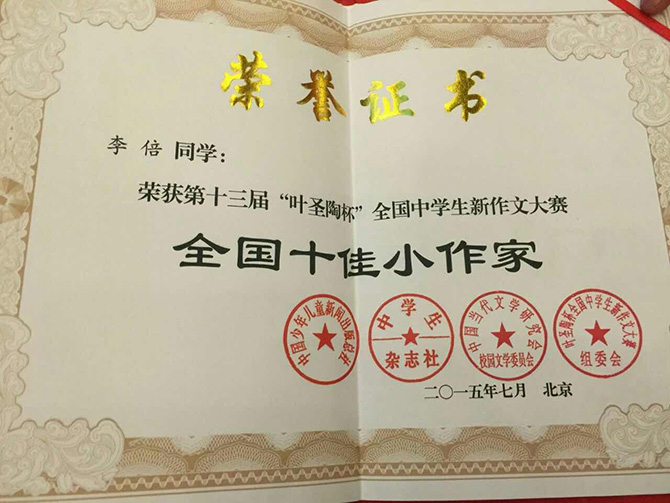 荣誉证书
李倍 同学：
荣获第十三届“叶圣陶杯”全国中学生新作文大赛
全国十佳小作家
中国少年儿童新闻出版总社
中学生
杂志社
中国当代文学研究会
校园文学委员会
叶圣陶杯全国中学生新作文大赛
组委会
二〇一五年七月 北京